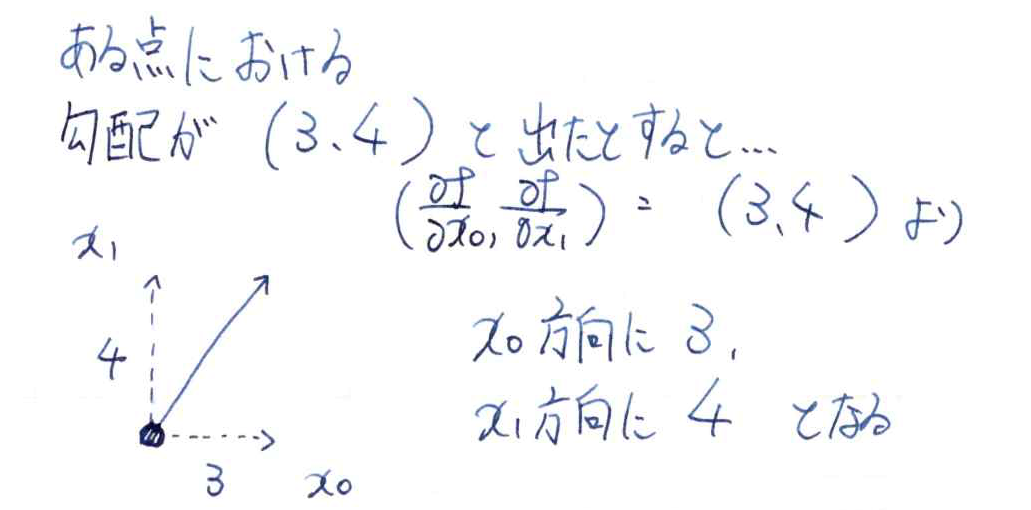 ある点における
勾配が (3、4) と出たとすると...
(∂f/∂x₀, ∂f/∂x₁) = (3、4) より
x₁
4
3
x₀
x₀方向に 3,
x₁方向に 4 となる